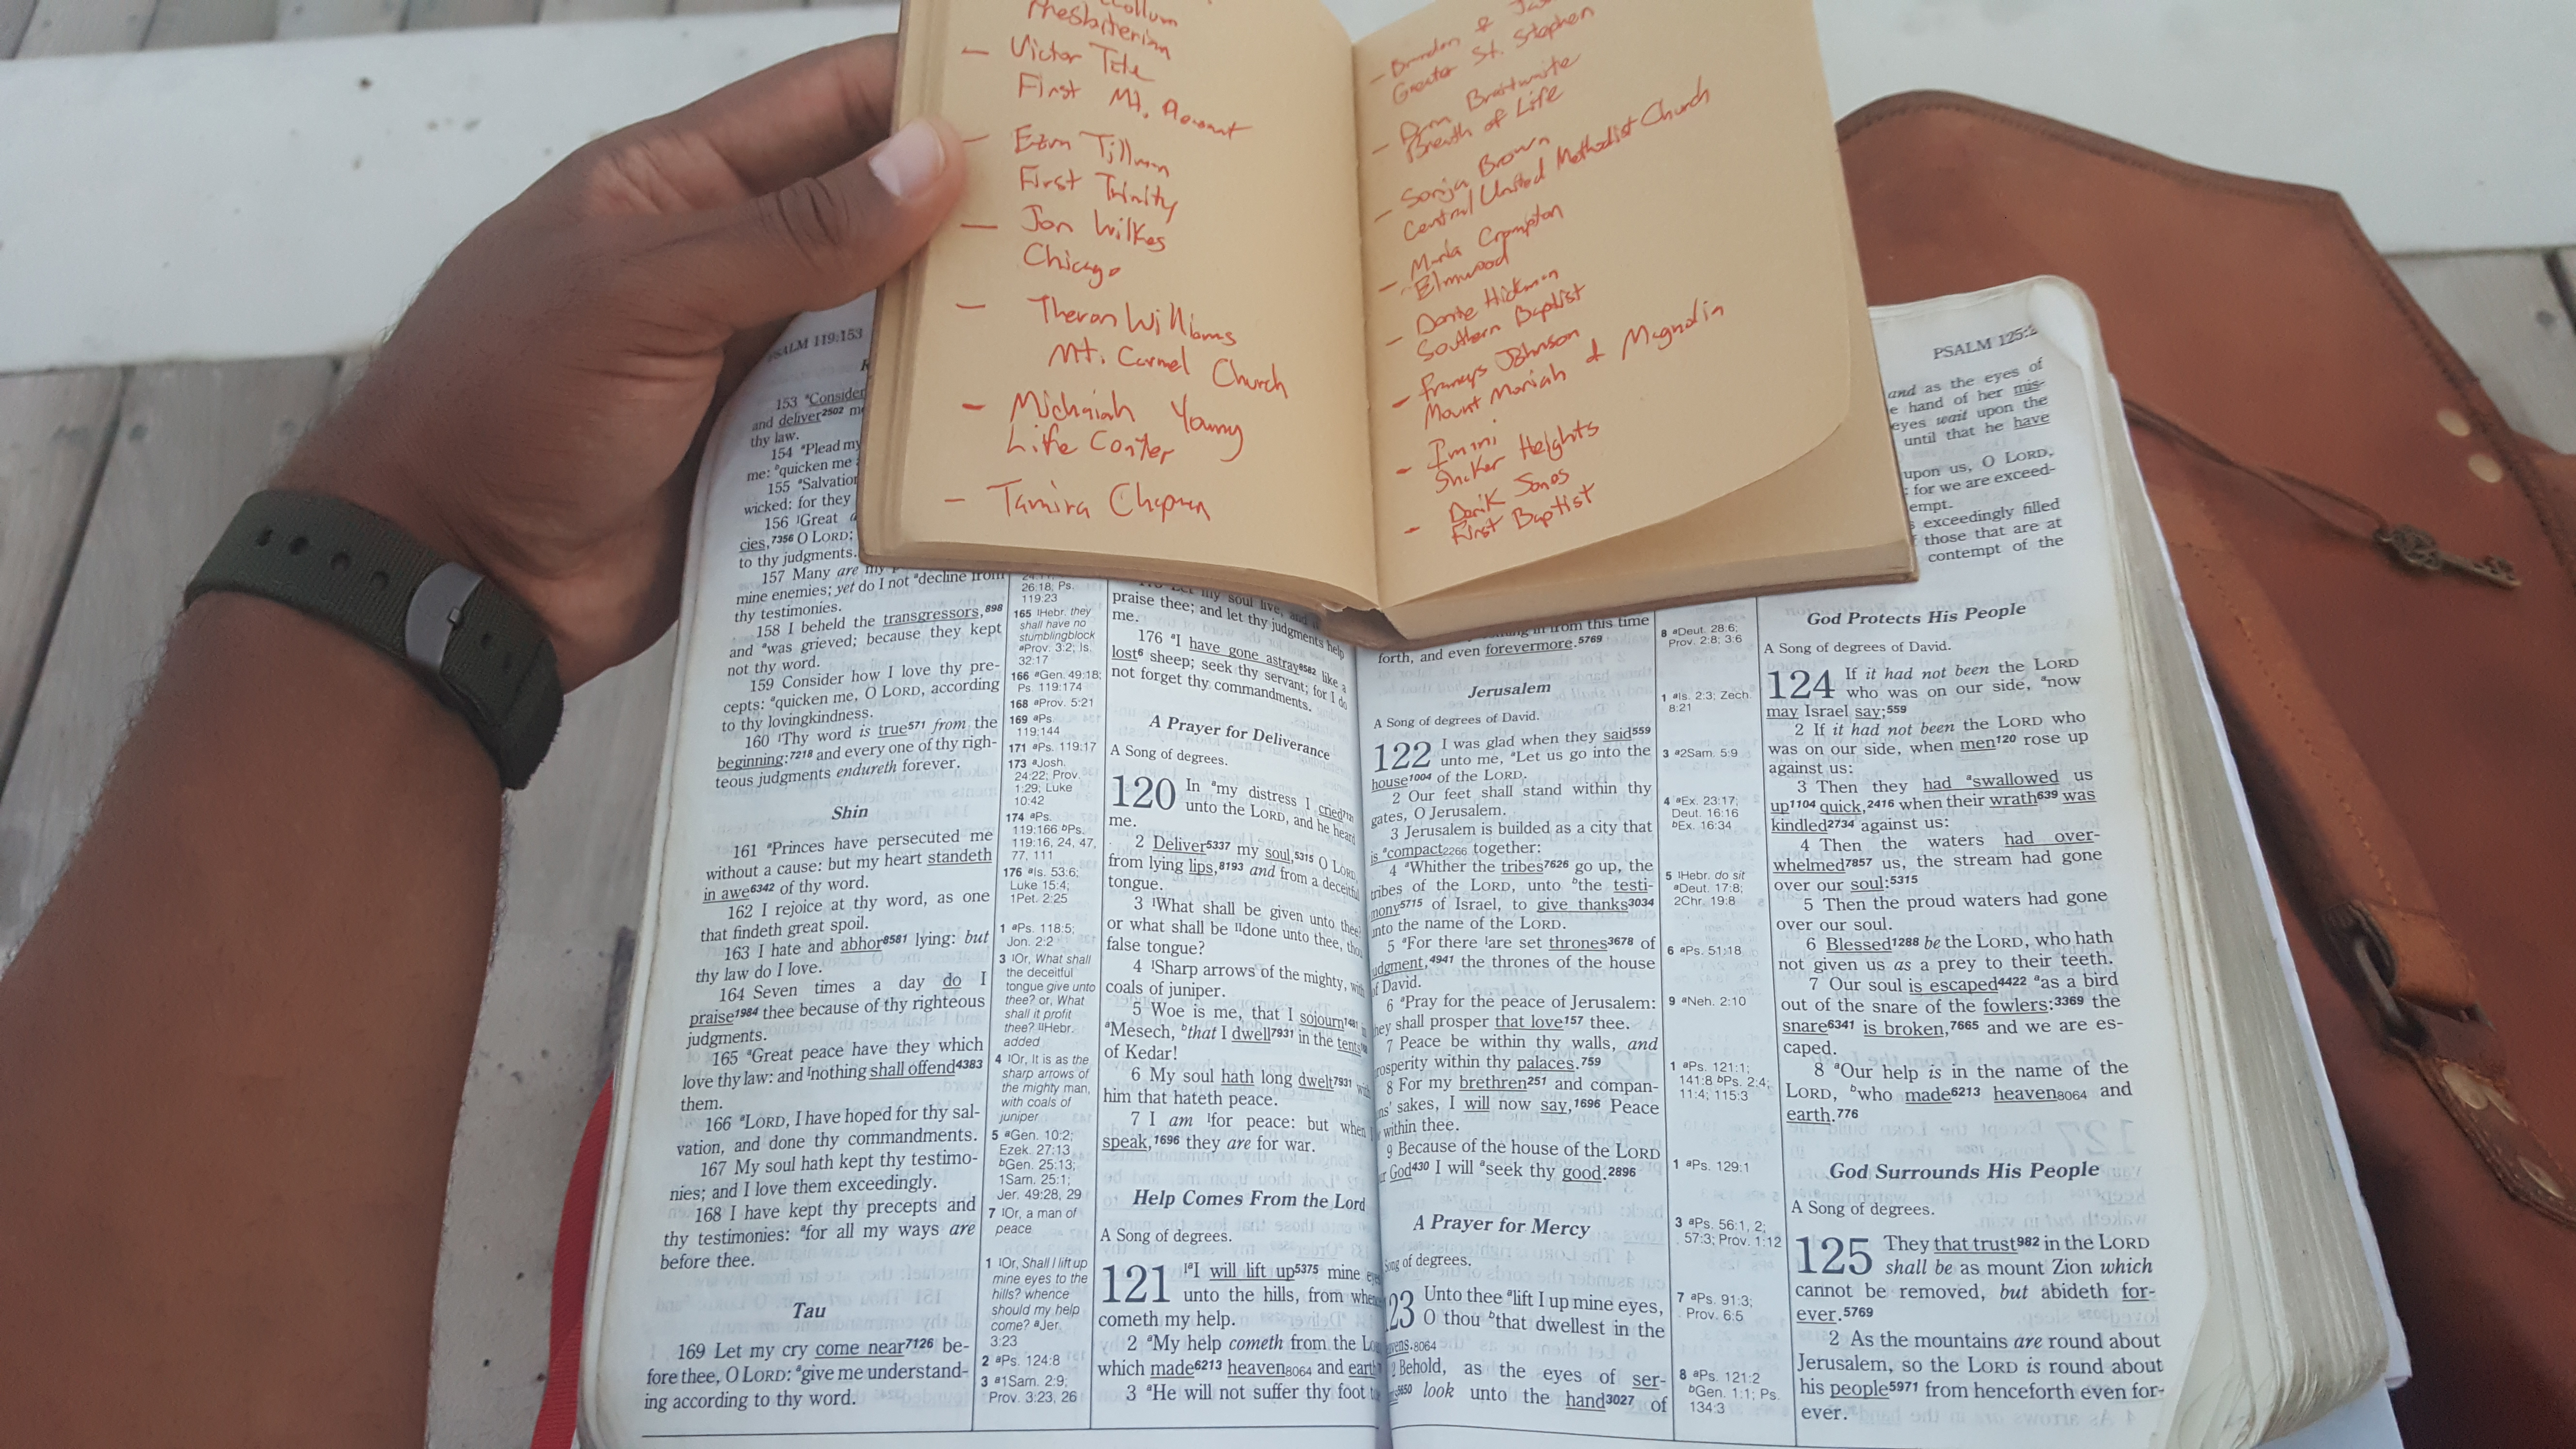 Presbiterian
— Victor Tate
First Mt. Pleasant
— Ezra Tillman
First Trinity
— Jon Wilkes
Chicago
— Theron Williams
Mt. Carmel Church
— Michaiah Young
Life Center
— Tamira Chapman
— Brandon &
Greater St. Stephen
— Braitwaite
Breath of Life
— Sonja Brown
Central United Methodist Church
— Marla Crompton
Elmwood
— Donte Hickman
Southern Baptist
— Johnson
Mount Moriah & Magnolia
— Imani
Shaker Heights
— Darik
First Baptist
PSALM 119:153
153 ªConsider
and deliver²⁵⁰² m
thy law.
154 ªPlead my
me: ᵇquicken me
155 ªSalvation
wicked: for they
156 ˡGreat
cies,⁷³⁵⁶ O LORD:
to thy judgments.
157 Many are my
mine enemies; yet do I not ªdecline from
thy testimonies.
158 I beheld the transgressors,⁸⁹⁸
and ªwas grieved; because they kept
not thy word.
159 Consider how I love thy pre-
cepts: ªquicken me, O LORD, according
to thy lovingkindness.
160 ˡThy word is true⁵⁷¹ from the
beginning:⁷²¹⁸ and every one of thy righ-
teous judgments endureth forever.
Shin
161 ªPrinces have persecuted me
without a cause: but my heart standeth
in awe⁶³⁴² of thy word.
162 I rejoice at thy word, as one
that findeth great spoil.
163 I hate and abhor⁸⁵⁸¹ lying: but
thy law do I love.
164 Seven times a day do I
praise¹⁹⁸⁴ thee because of thy righteous
judgments.
165 ªGreat peace have they which
love thy law: and ˡnothing shall offend⁴³⁸³
them.
166 ªLORD, I have hoped for thy sal-
vation, and done thy commandments.
167 My soul hath kept thy testimo-
nies; and I love them exceedingly.
168 I have kept thy precepts and
thy testimonies: ªfor all my ways are
before thee.
Tau
169 Let my cry come near⁷¹²⁶ be-
fore thee, O LORD: ªgive me understand-
ing according to thy word.
26:18; Ps.
119:23
165 ˡHebr. they
shall have no
stumblingblock
ªProv. 3:2; Is.
32:17
166 ªGen. 49:18;
Ps. 119:174
168 ªProv. 5:21
169 ªPs.
119:144
171 ªPs. 119:17
173 ªJosh.
24:22; Prov.
1:29; Luke
10:42
174 ªPs.
119:166 ᵇPs.
119:16, 24, 47,
77, 111
176 ªIs. 53:6;
Luke 15:4;
1Pet. 2:25
1 ªPs. 118:5;
Jon. 2:2
3 ˡOr, What shall
the deceitful
tongue give unto
thee? or, What
shall it profit
thee? ˡˡHebr.
added
4 ˡOr, It is as the
sharp arrows of
the mighty man,
with coals of
juniper
5 ªGen. 10:2;
Ezek. 27:13
ᵇGen. 25:13;
1Sam. 25:1;
Jer. 49:28, 29
7 ˡOr, a man of
peace
1 ˡOr, Shall I lift up
mine eyes to the
hills? whence
should my help
come? ªJer.
3:23
2 ªPs. 124:8
3 ª1Sam. 2:9;
Prov. 3:23, 26
my soul live, and
praise thee; and let thy judgments help
me.
176 ªI have gone astray⁸⁵⁸² like a
lost⁶ sheep; seek thy servant; for I do
not forget thy commandments.
A Prayer for Deliverance
A Song of degrees.
120 In ªmy distress I cried
unto the LORD, and he heard
me.
2 Deliver⁵³³⁷ my soul,⁵³¹⁵ O LORD,
from lying lips,⁸¹⁹³ and from a deceitful
tongue.
3 ˡWhat shall be given unto thee?
or what shall be ˡˡdone unto thee, thou
false tongue?
4 ˡSharp arrows of the mighty, with
coals of juniper.
5 Woe is me, that I sojourn in
ªMesech, ᵇthat I dwell⁷⁹³¹ in the tents
of Kedar!
6 My soul hath long dwelt⁷⁹³¹ with
him that hateth peace.
7 I am ˡfor peace: but when I
speak,¹⁶⁹⁶ they are for war.
Help Comes From the Lord
A Song of degrees.
121 ˡªI will lift up⁵³⁷⁵ mine eyes
unto the hills, from whence
cometh my help.
2 ªMy help cometh from the Lo
which made⁶²¹³ heaven₈₀₆₄ and earth
3 ªHe will not suffer thy foot
in from this time
forth, and even forevermore.⁵⁷⁶⁹
Jerusalem
A Song of degrees of David.
122 I was glad when they said⁵⁵⁹
unto me, ªLet us go into the
house¹⁰⁰⁴ of the LORD.
2 Our feet shall stand within thy
gates, O Jerusalem.
3 Jerusalem is builded as a city that
is ªcompact₂₂₆₆ together:
4 ªWhither the tribes⁷⁶²⁶ go up, the
tribes of the LORD, unto ᵇthe testi-
mony⁵⁷¹⁵ of Israel, to give thanks³⁰³⁴
unto the name of the LORD.
5 ªFor there ˡare set thrones³⁶⁷⁸ of
judgment,⁴⁹⁴¹ the thrones of the house
of David.
6 ªPray for the peace of Jerusalem:
they shall prosper that love¹⁵⁷ thee.
7 Peace be within thy walls, and
rosperity within thy palaces.⁷⁵⁹
8 For my brethren²⁵¹ and compan-
ns' sakes, I will now say,¹⁶⁹⁶ Peace
within thee.
9 Because of the house of the LORD
r God⁴³⁰ I will ªseek thy good.²⁸⁹⁶
A Prayer for Mercy
Song of degrees.
23 Unto thee ªlift I up mine eyes,
O thou ᵇthat dwellest in the
avens.₈₀₆₄
2 Behold, as the eyes of ser-
look unto the hand³⁰²⁷ of
8 ªDeut. 28:6;
Prov. 2:8; 3:6
1 ªIs. 2:3; Zech.
8:21
3 ª2Sam. 5:9
4 ªEx. 23:17;
Deut. 16:16
ᵇEx. 16:34
5 ˡHebr. do sit
ªDeut. 17:8;
2Chr. 19:8
6 ªPs. 51:18
9 ªNeh. 2:10
1 ªPs. 121:1;
141:8 ᵇPs. 2:4;
11:4; 115:3
1 ªPs. 129:1
3 ªPs. 56:1, 2;
57:3; Prov. 1:12
7 ªPs. 91:3;
Prov. 6:5
8 ªPs. 121:2
ᵇGen. 1:1; Ps.
134:3
PSALM 125:2
and as the eyes of
e hand of her mis-
eyes wait upon the
until that he have
upon us, O LORD,
: for we are exceed-
empt.
s exceedingly filled
f those that are at
contempt of the
God Protects His People
A Song of degrees of David.
124 If it had not been the LORD
who was on our side, ªnow
may Israel say;⁵⁵⁹
2 If it had not been the LORD who
was on our side, when men¹²⁰ rose up
against us:
3 Then they had ªswallowed us
up¹¹⁰⁴ quick,²⁴¹⁶ when their wrath⁶³⁹ was
kindled²⁷³⁴ against us:
4 Then the waters had over-
whelmed⁷⁸⁵⁷ us, the stream had gone
over our soul:⁵³¹⁵
5 Then the proud waters had gone
over our soul.
6 Blessed¹²⁸⁸ be the LORD, who hath
not given us as a prey to their teeth.
7 Our soul is escaped⁴⁴²² ªas a bird
out of the snare of the fowlers:³³⁶⁹ the
snare⁶³⁴¹ is broken,⁷⁶⁶⁵ and we are es-
caped.
8 ªOur help is in the name of the
LORD, ᵇwho made⁶²¹³ heaven₈₀₆₄ and
earth.⁷⁷⁶
God Surrounds His People
A Song of degrees.
125 They that trust⁹⁸² in the LORD
shall be as mount Zion which
cannot be removed, but abideth for-
ever.⁵⁷⁶⁹
2 As the mountains are round about
Jerusalem, so the LORD is round about
his people⁵⁹⁷¹ from henceforth even for-
ever.